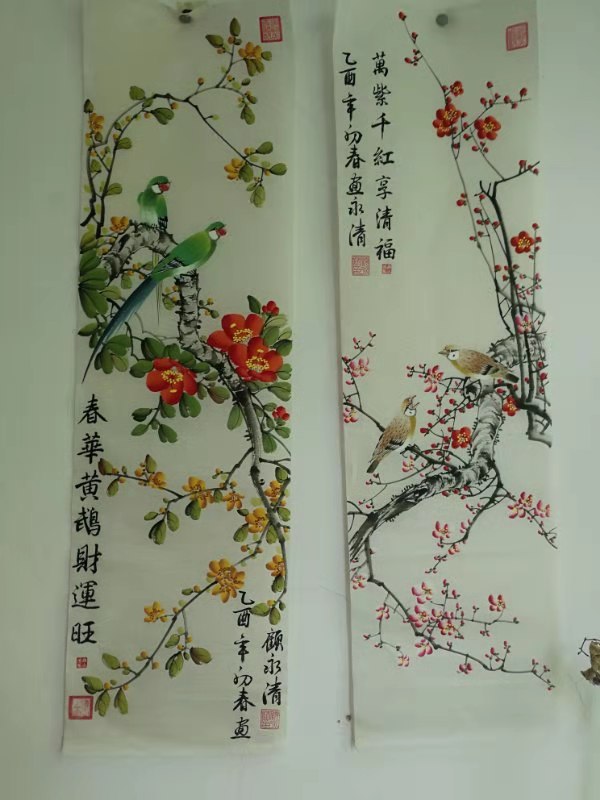 春華黄財運旺
乙酉年初春画
顧永清
萬紫千紅享清福
乙酉年初春画永清